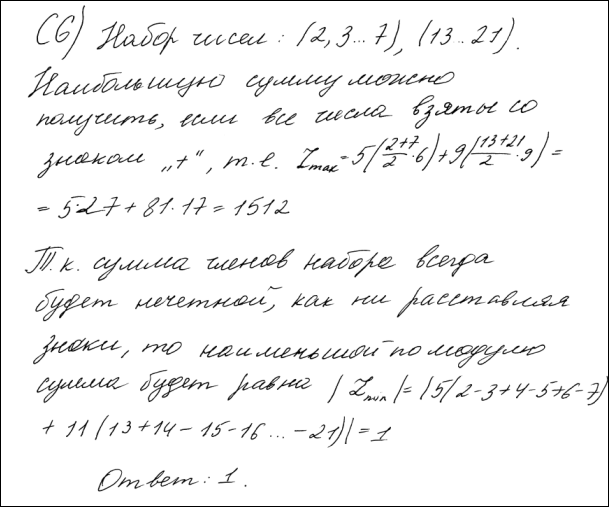 С6) Набор чисел: (2,3...7), (13...21).
Наибольшую сумму можно
получить, если все числа взяты со
знаком „+", т.е. Σmax=5(2+7/2·6)+9(13+21/2·9)=
= 5·27 + 81·17 = 1512
Т.к. сумма членов набора всегда
будет нечетной, как ни расставляя
знаки, то наименьшой по модулю
сумма будет равна |Σmin|=|5(2-3+4-5+6-7)
+ 11(13+14-15-16...-21)|=1
Ответ: 1.